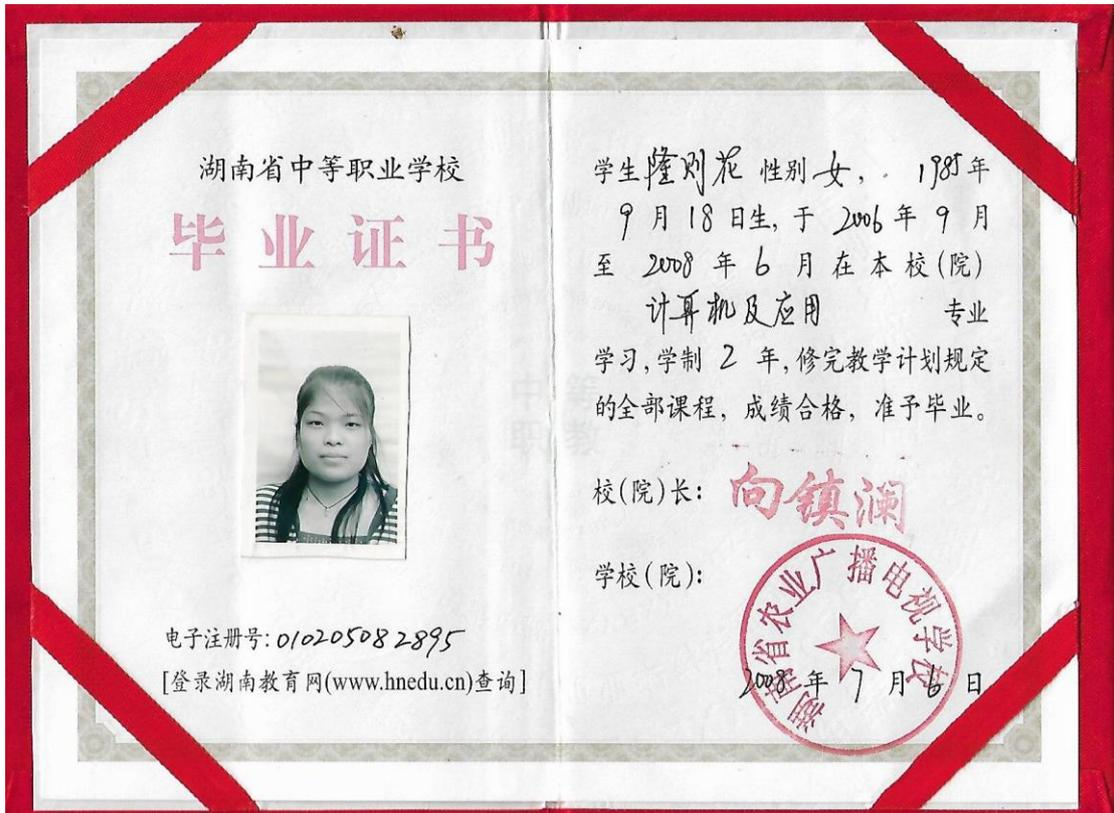 湖南省中等职业学校
毕业证书
电子注册号:010205082895
[登录湖南教育网(www.hnedu.cn)查询]
中等
职教
学生隆则花 性别女, 1985年
9月18日生,于2006年9月
至2008年6月在本校(院)
计算机及应用 专业
学习,学制2年,修完教学计划规定
的全部课程,成绩合格,准予毕业。
校(院)长:向镇澜
学校(院):
湖南省农业广播电视学校
2008年7月6日